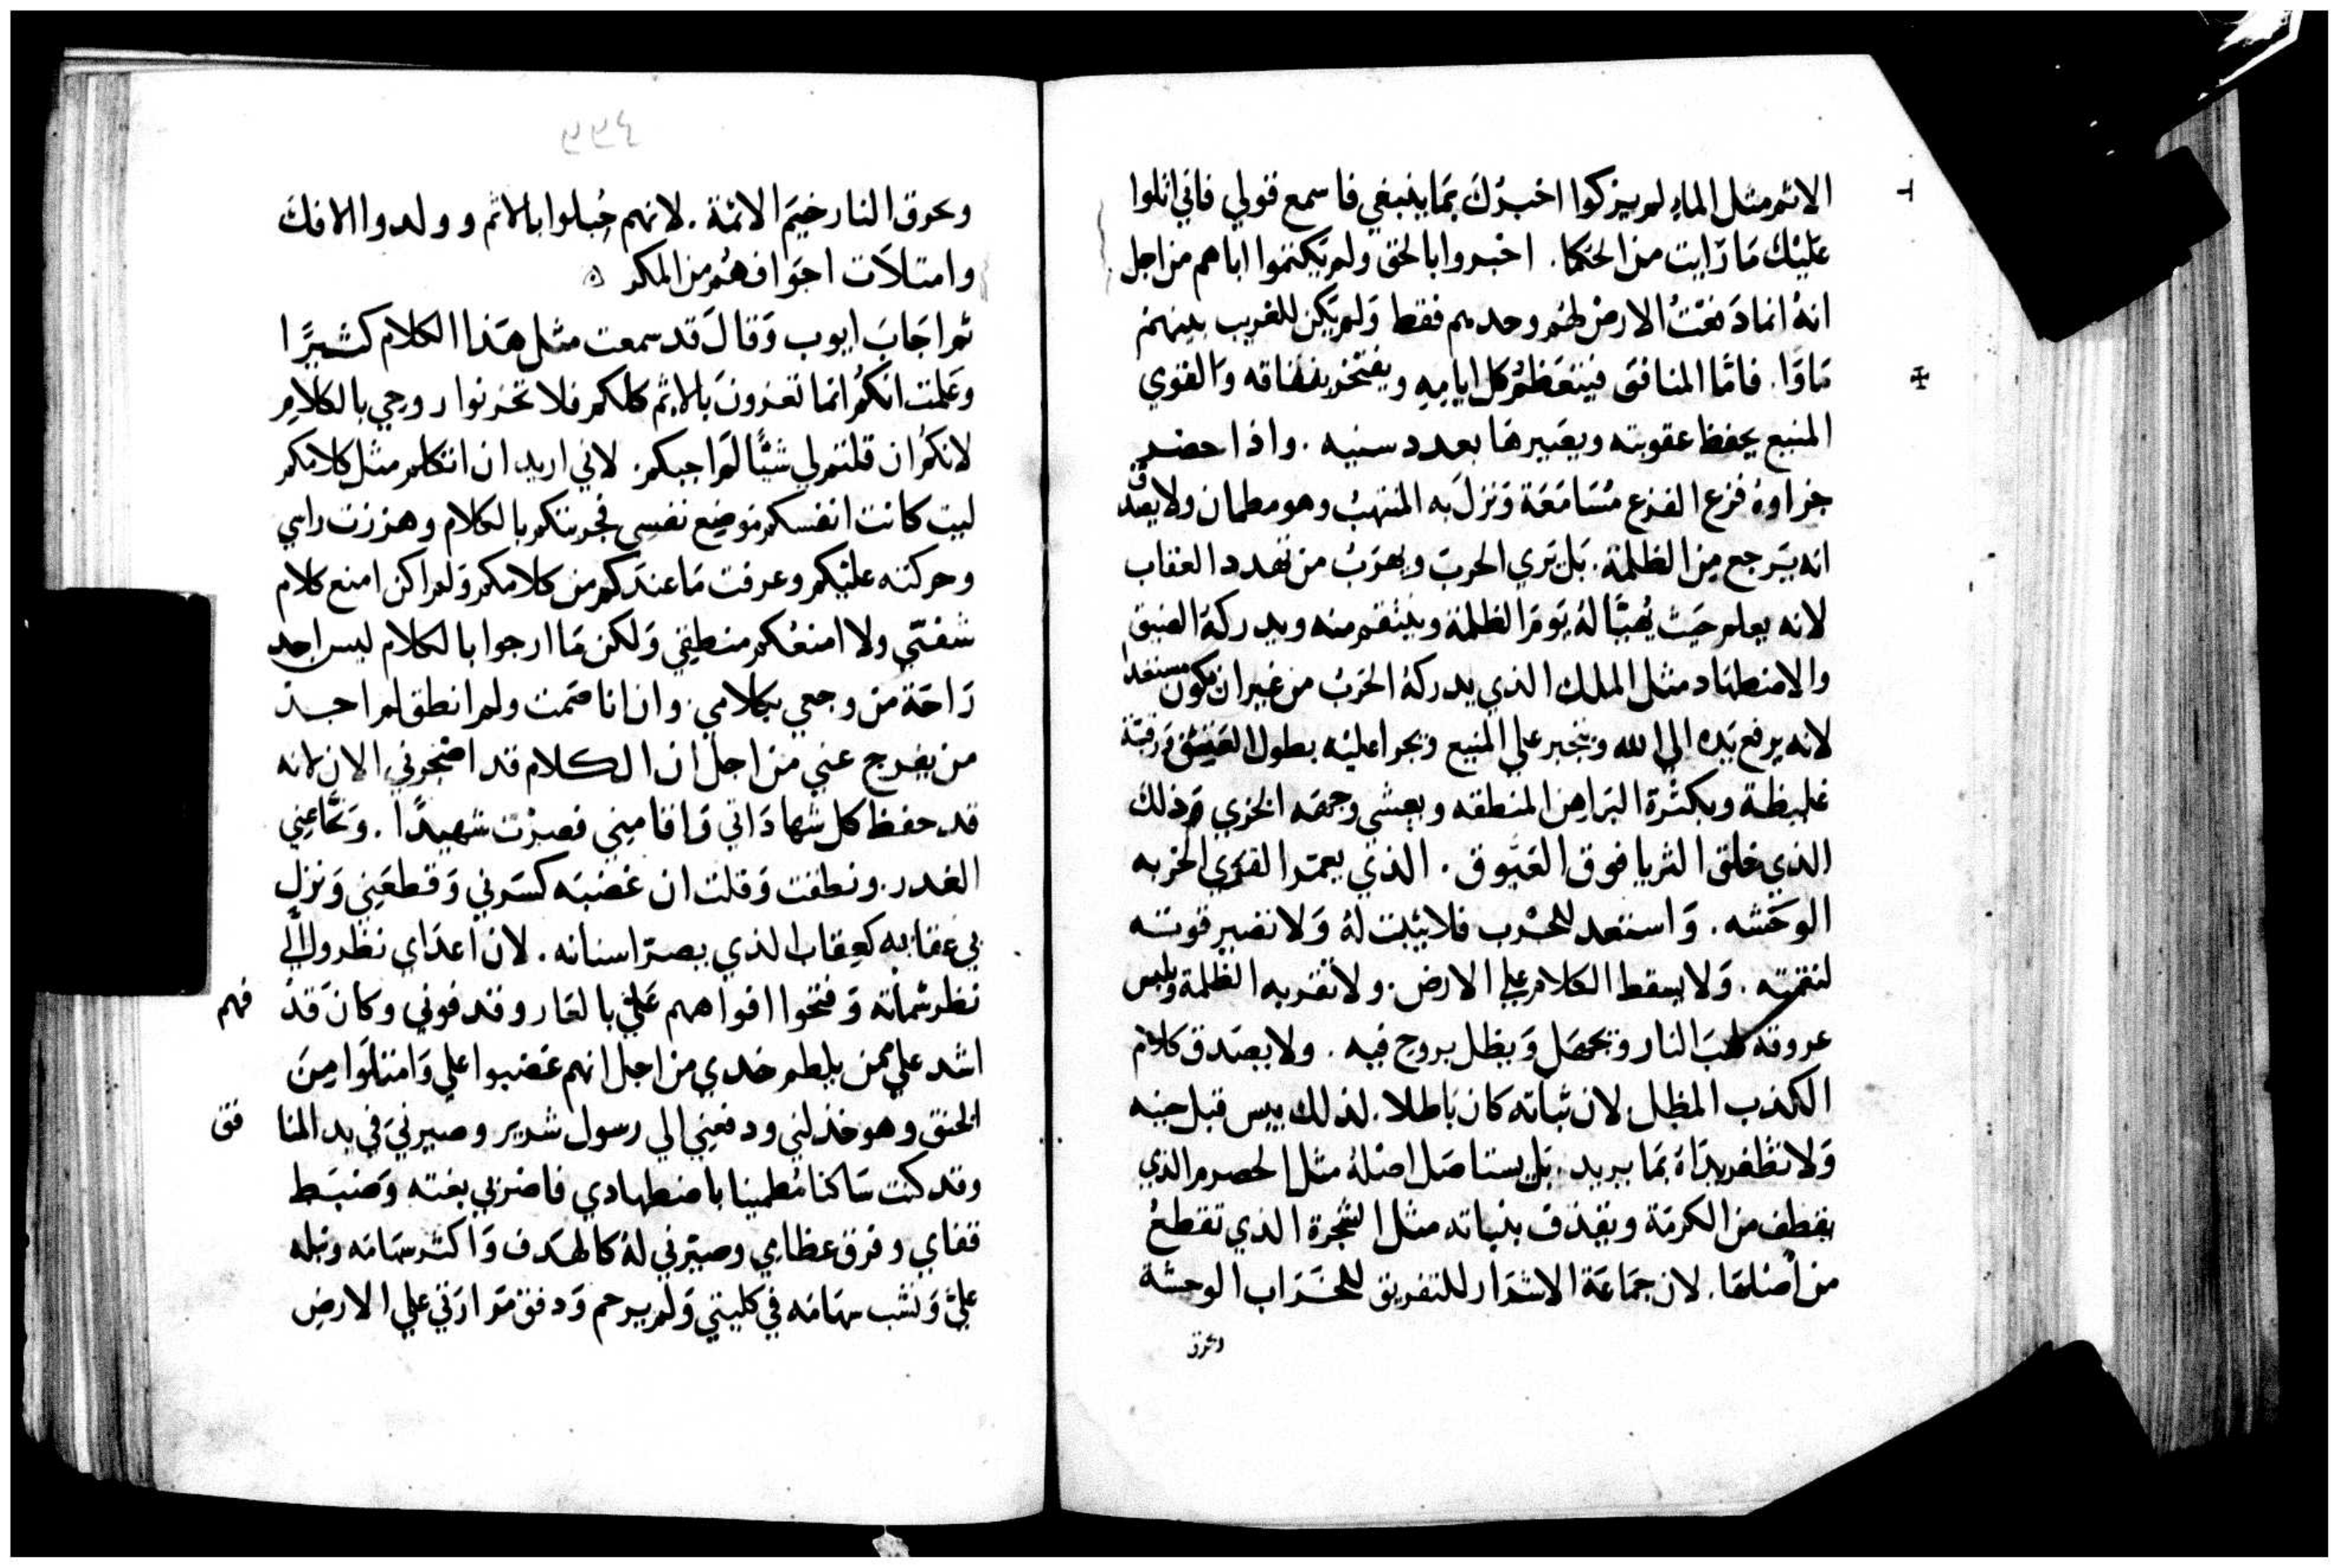 الاثم مثل الماء لم يزكوا اخبرك بما ينبغي فاسمع قولي فاني اتلوا
عليك ما رايت من الحكما. اخبروا بالحق ولم يكتموا اباهم من اجل
انه انما دفعت الارض لهم وحدهم فقط ولم يكن للغريب بينهم
ماوا. فاما المنافق فيتعظم كل ايامه ويفتخر بنفاقه والقوي
المنيع يحفظ عقوبته ويعيرها بعدد سنيه. واذا حضر
جزاوه فزع الفزع مسامعه ونزل به المنهب وهو مطمان ولا يصدق
انه يرجع من الظلمة. بل يري الحرب ويهرب من تهدد العقاب
لانه يعلم حيث يهيا له يوم الظلمة وينتقم منه ويدركه الضيق
والاضطهاد مثل الملك الذي يدركه الحرب من غير ان يكون مستعدا
لانه يرفع يده الي الله ويتجبر علي المنيع ويجرا عليه بطول العنق رقبة
غليظة وبكثرة البراهن المنطقه ويعشي وجهه الخزي وذلك
الذي خلق الثريا فوق العيوق. الذي يعمر القري الخربه
الوحشه. واستعد للحرب فلا يثبت له ولا تصير قوته
لنقمته. ولا يسقط الكلام علي الارض. ولا تقربه الظلمة ويلبس
عروقه لهب النار ويحصل ويظل يروج فيه. ولا يصدق كلام
الكذب المظل لان ثباته كان باطلا. لذلك ييبس قبل حينه
ولا تظفر يداه بما يريد. بل يستاصل اصله مثل الحصرم الذي
يقطف من الكرمة ويقذف بنباته مثل الشجرة الذي تقطع
من اصلها. لان جماعة الاشرار للتفريق للخراب الوحشة
وتحرق
٤٩٩
وتحرق النار خيم الاثمة. لانهم حبلوا بالاثم وولدوا الافك
وامتلات اجوافهم من المكر
ثم اجاب ايوب وقال قد سمعت مثل هذا الكلام كثيرا
وعلمت انكم انما تعزون بالاثم كلكم فلا تحزنوا روحي بالكلام
لانكم ان قلتم لي شيا لم اجبكم. لاني اريد ان اتكلم مثل كلامكم
ليت كانت انفسكم موضع نفسي فجربتكم بالكلام وهززت راسي
وحركته عليكم وعرفت ما عندكم من كلامكم ولم اكن امنع كلام
شفتي ولا امنعكم منطقي ولكن ما ارجوا بالكلام ليس اجد
راحة من وجعي بكلامي. وان انا صمت ولم انطق لم اجد
من يفرج عني من اجل ان الكلام قد اضجرني الان لانه
قد حفظ كل شهاداتي واقاميني فصرت شهيدا. ونحا عني
الغدر. ونطقت وقلت ان غضبه كسرني وقطعني ونزل
بي عقابه كعقاب الذي يصر اسنانه. لان اعداي نظروا الي
نظر شماته وفتحوا افواههم علي بالعار وقذفوني وكان قد
فهم
اشد علي ممن يلطم خدي من اجل انهم غضبوا علي وامتلوا من
الحنق وهو خذلني ودفعني الي رسول شرير وصيرني في يد المنا
فق
وقد كنت ساكنا مطمينا باضطهادي فاضربي بغته وضبط
قفاي وفرق عظامي وصيرني له كالهدف واكثر سهامه ونبله
علي ونشب سهامه في كليتي ولم يرحم ودفق مرارتي علي الارض